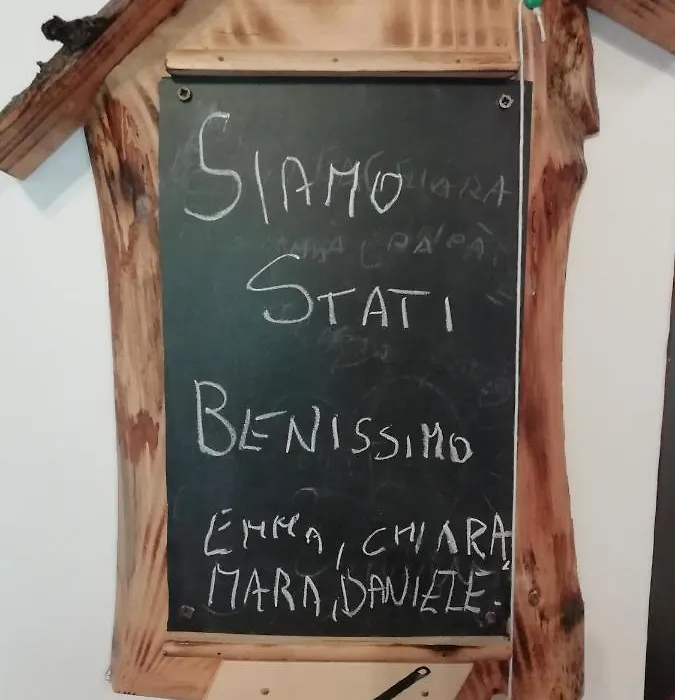 SIAMO
STATI
BENISSIMO
EMMA, CHIARA,
MARA, DANIELE.